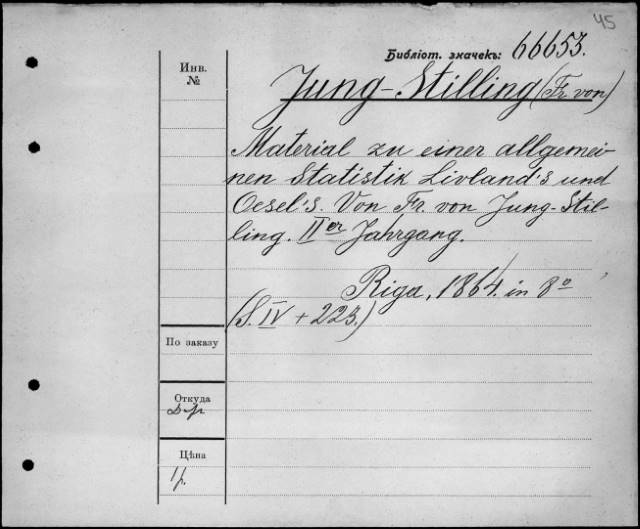 45
Библіот. значекъ: 66653.
Инв.
№
Jung-Stilling (Fr. von)
Material zu einer allgemei-
nen Statistik Livland's und
Oesel's. Von Fr. von Jung-Stil-
ling. II er Jahrgang.
Riga, 1864. in 8o
(S. IV + 223.)
По заказу
Откуда
Цѣна
1р.